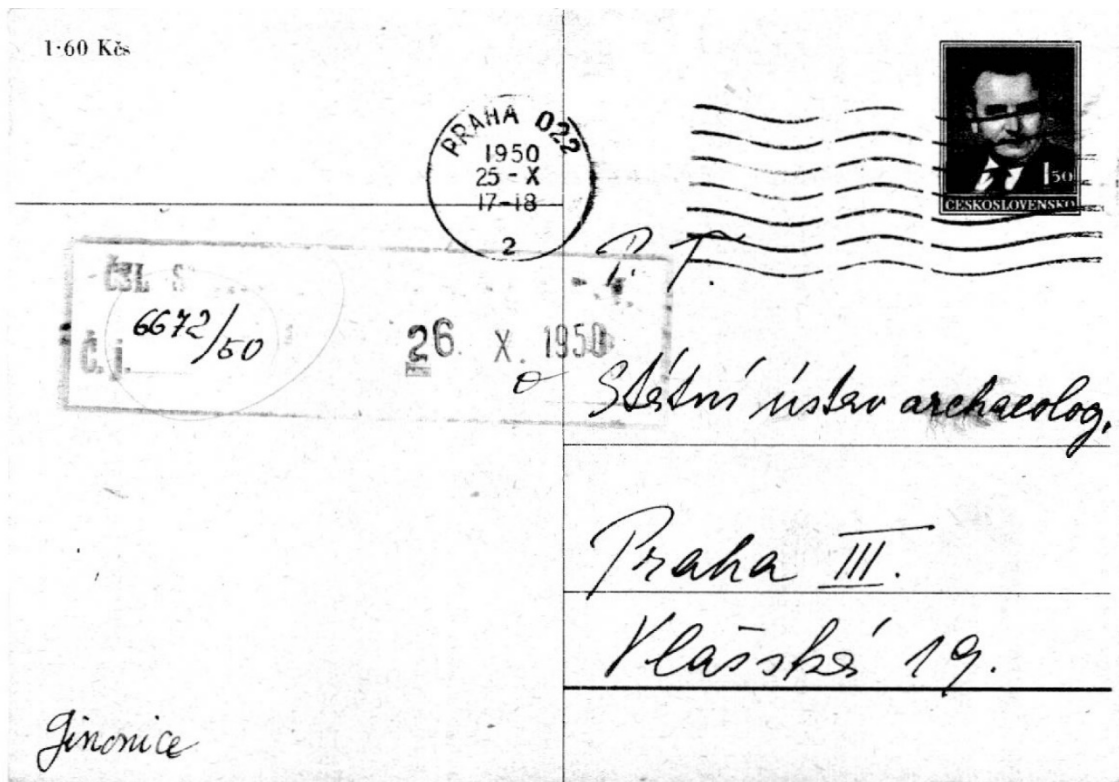 1·60 Kčs
PRAHA 022
1950
25-X
17-18
2
1 50
ČESKOSLOVENSKO
P. T.
ČSL S
Č. j. 6672/50
26 X. 1950
Státní ústav archaeolog.
Praha III.
Vlašská 19.
Jinonice